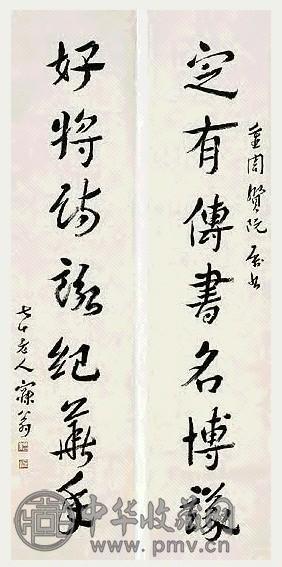 重周賢阮屬
定有傳書名博議
好將紀華年
七十老人寐翁
中华收藏网
www.pmv.cn